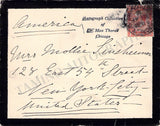 America
Autograph Collection
of
Max Thorek
Chicago
Mrs Mollie
127 East 54th Street
New York City
United States